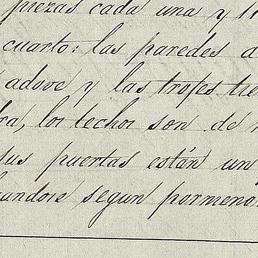 piezas cada una y
cuarto: las paredes
adove y las trojes
los techos son de
sus puertas están un
segun pormeno